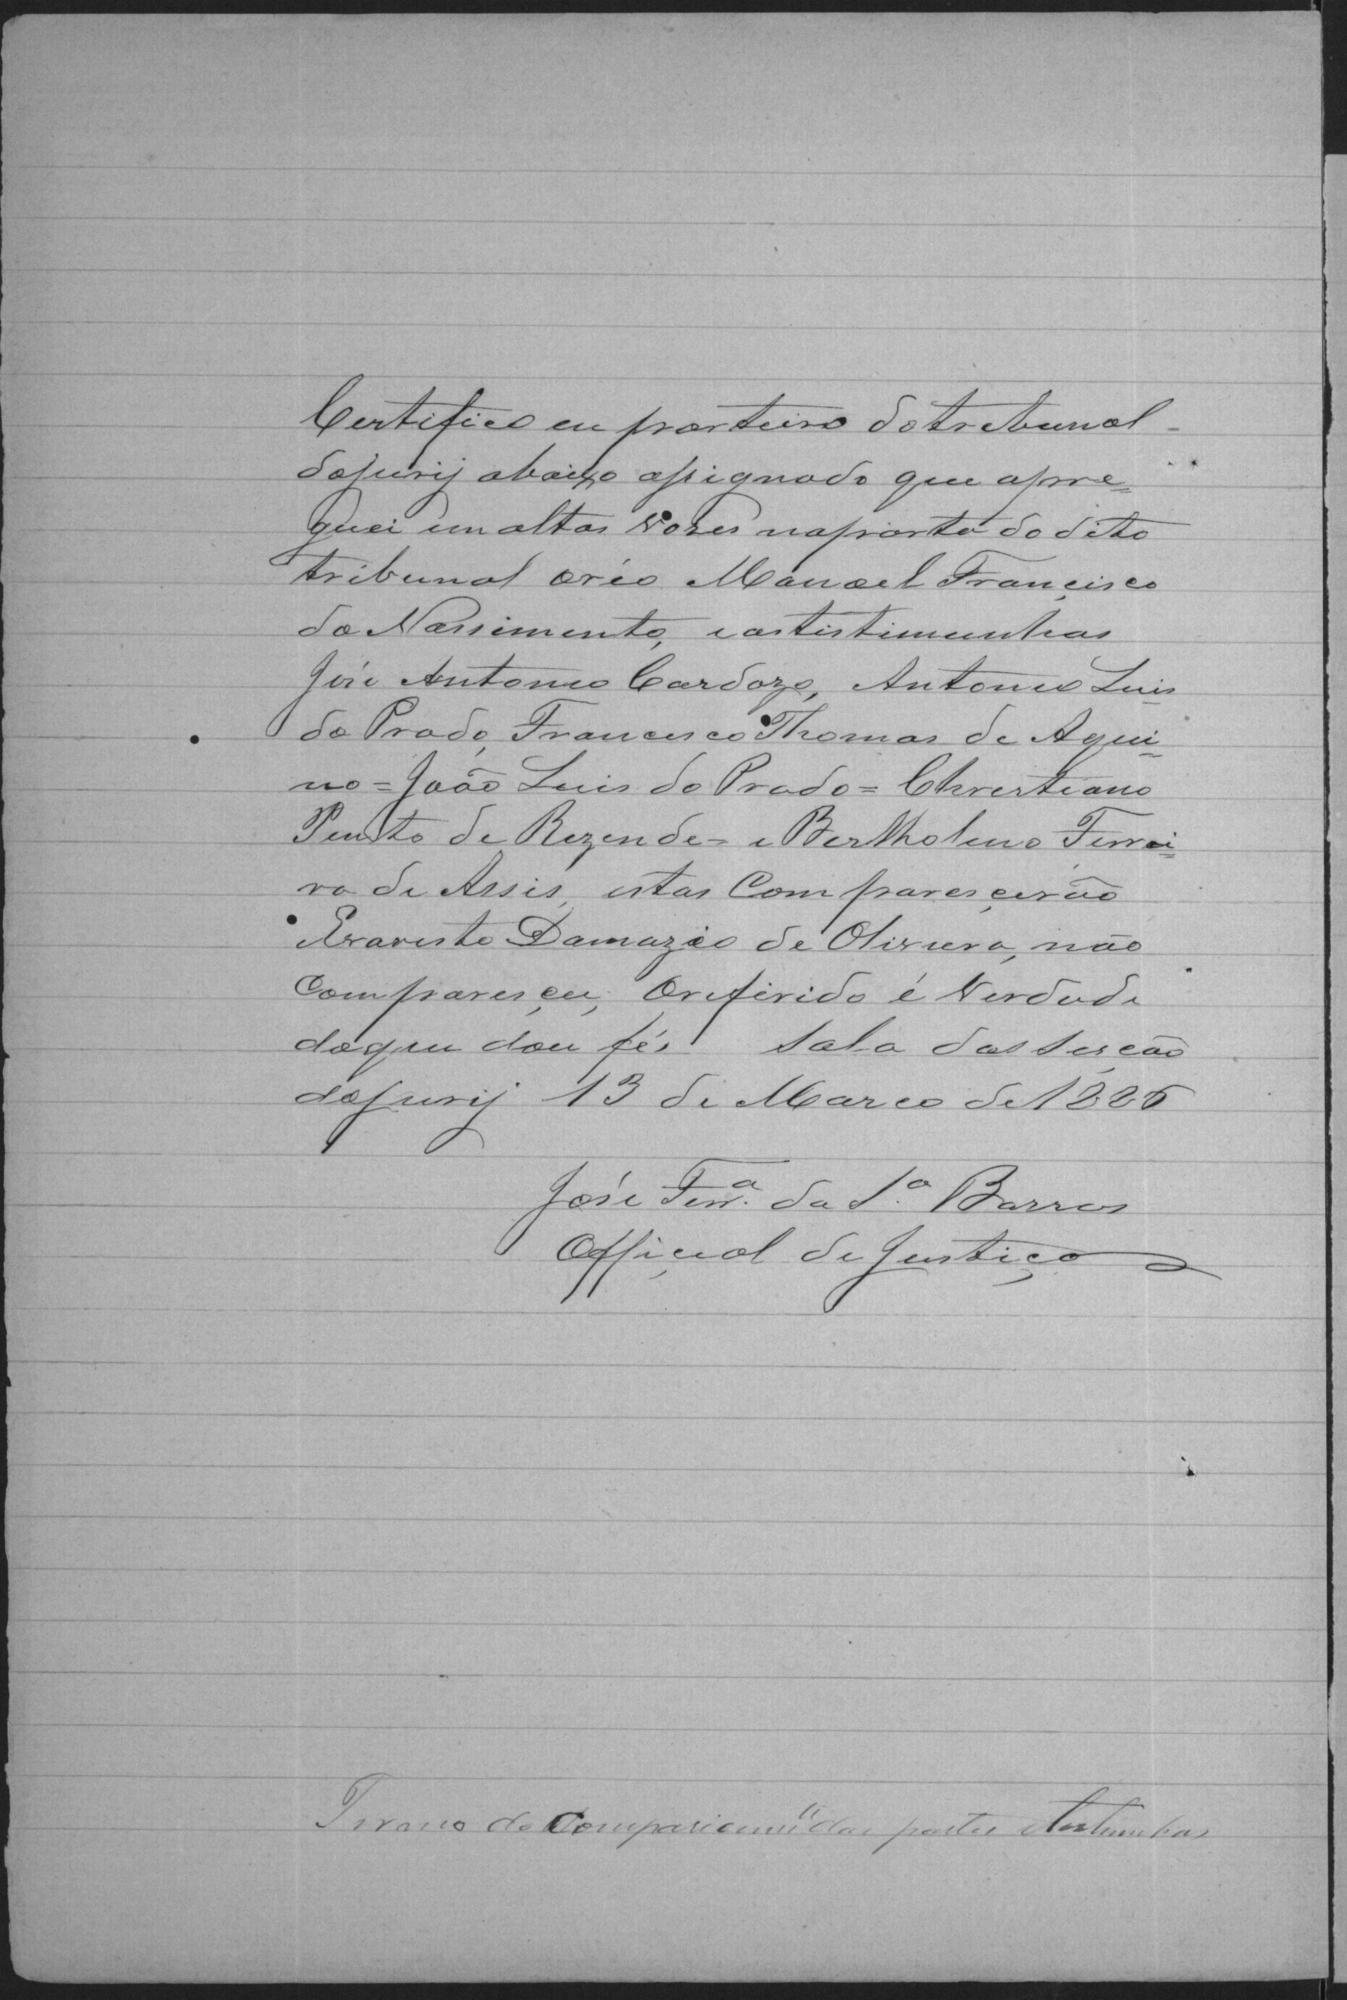 Certifico eu porteiro do tribunal
dojurij abaixo assignado que apre=
guei em altas Vozes naporta do dito
tribunal oréo Manoel Francisco
do Nassimento, e astistimunhas
José Antonio Cardozo, Antonio Luis
do Prado, Francisco Thomas de Aqui=
no = João Luis do Prado = Christiano
Pinto de Rezende = e Bertholino Ferrei=
ra de Assis, estas Comparesçerão
Evaristo Damazio de Olivera, não
Comparesçeu, Oreferido é Verdade
doque dou fés Sala das Seseão
dojurij 13 de Marco de 1886
José Ferr.ª da S.ª Barros
Offiçial de Justiça
Termo de Comparicim.to das partes e testemunhas